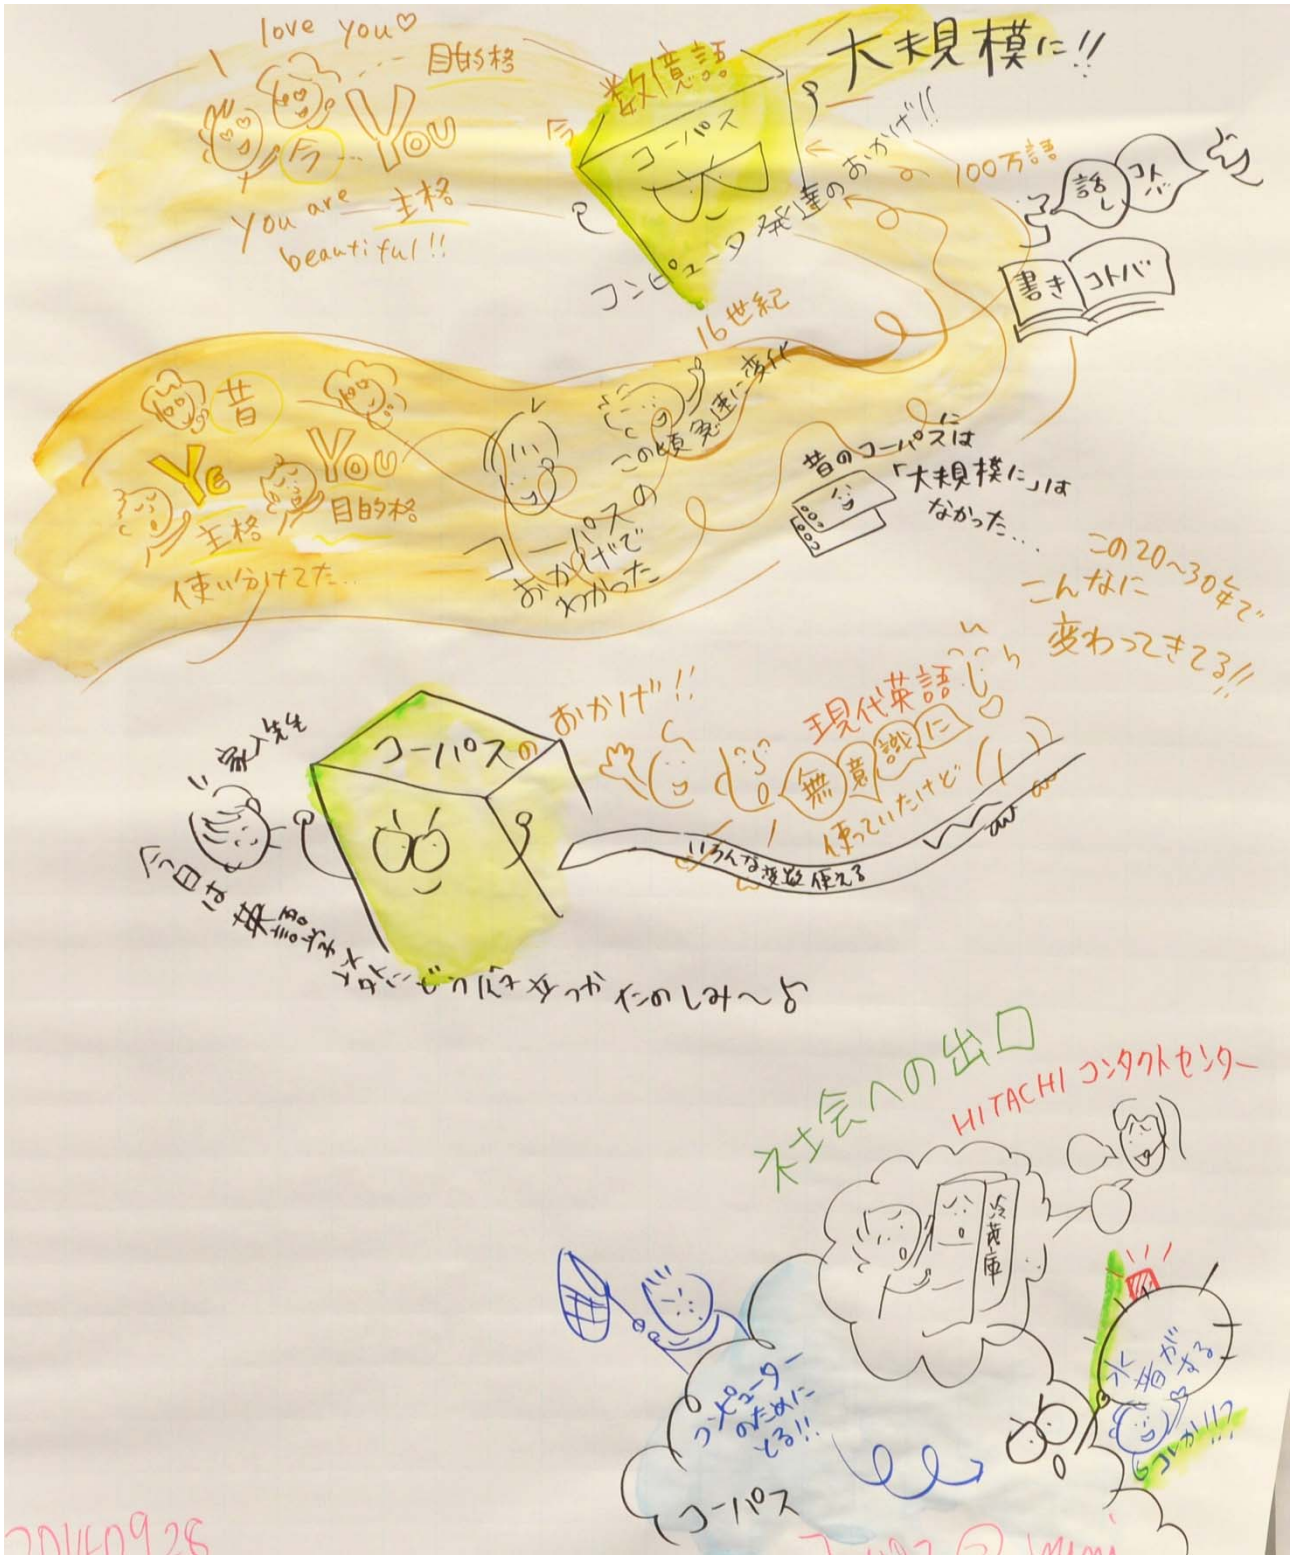 I love you♡
目的格
今… YOU
You are 主格
beautiful!!
今 数億語
コーパス
大規模に!!
コンピュータ発達のおかげ!!
100万語
話し
コトバ
書き コトバ
16世紀
この頃急速に変化
昔
YE YOU
主格 目的格
使い分けてた…
コーパスの
おかげで
わかった
昔のコーパスは
「大規模に」は
なかった…
この20〜30年で
こんなに
変わってきてる!!
家入先生
コーパスの
おかげ!!
現代英語
無意識に
使っていたけど
いろんな 使える
今日は英語学 にどう役立つかたのしみ〜♪
社会への出口
HITACHI コンタクトセンター
冷蔵庫
コンピューター
のために
とる!!
コーパス
水音が
する
コレか!!?
20140928